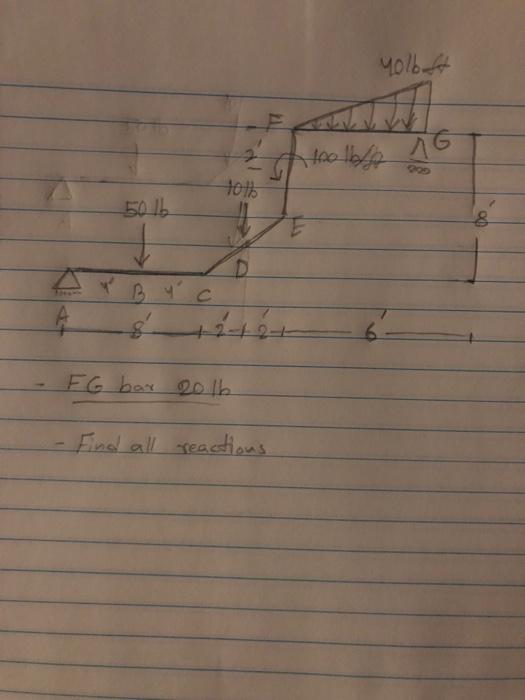 40lb-ft
- F
G
2'
100 lb/ft
10lb
50 lb
8'
E
D
4' B 4' C
A
8' 2' 2' 6'
- FG bar 20 lb
- Find all reactions